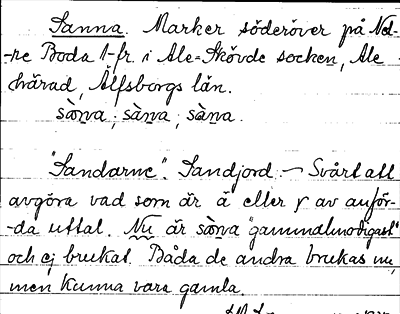 Sanna. Marker söderöver på Ned-
-re Boda 1-fr. i Ale-Skövde socken, Ale
härad, Älfsborgs län.
sà̀nva; sànva; sànva.
"Sandarne". Sandjord. – Svårt att
avgöra vad som är ä eller r av anför-
-da uttal. Nu är sànva "gammalmodigast"
och ej brukat. Båda de andra brukas nu,
men kunna vara gamla.